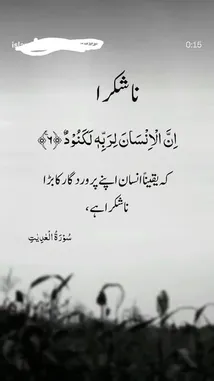 0:15
ناشکرا
اِنَّ الْاِنْسَانَ لِرَبِّهٖ لَكَنُوْدٌ ﴿٦﴾
کہ یقیناً انسان اپنے پروردگار کا بڑا
ناشکرا ہے،
سُوْرَةُ الْعٰدِيٰتِ